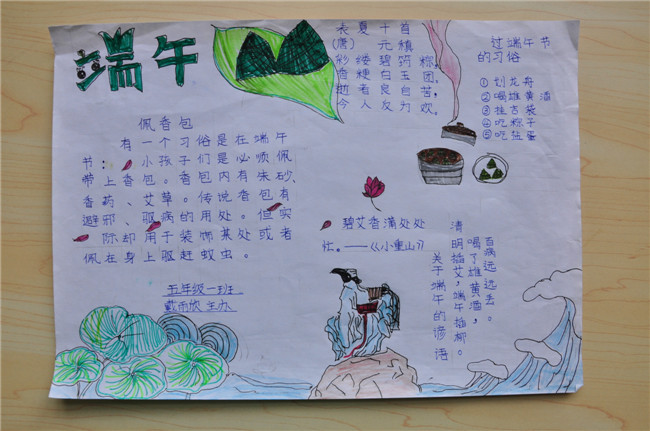 端午
佩香包
有一个习俗是在端午
节：小孩子们是必须佩
带上香包。香包内有朱砂、
香药、艾草。传说香包有
避邪、驱病的用处。但实
际却用于装饰某处或者
佩在身上驱赶蚊虫。
五年级一班
戴雨欣 主办
表夏十首
(唐) 元稹
彩缕碧筠粽,
香粳白玉团。
逝者良自苦,
今人反为欢。
过端午节
的习俗
①划龙舟
②喝雄黄酒
③挂古袋
④吃粽子
⑤吃盐蛋
碧艾香满处处
忙。——《小重山》
关于端午的谚语
清明插艾，端午插柳。
喝了雄黄酒，
百病远远丢。